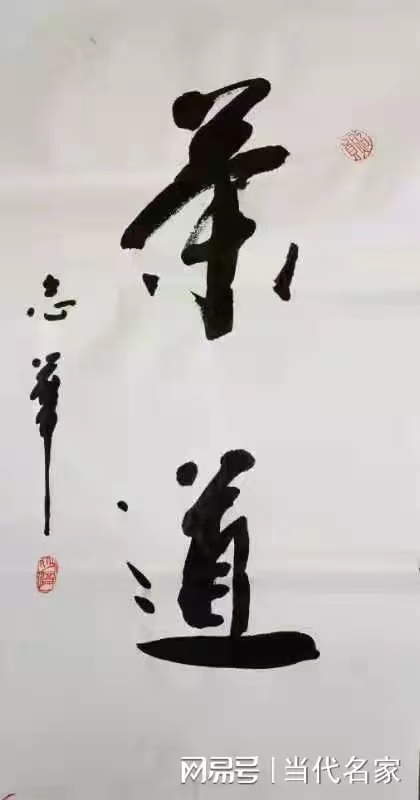 茶道
志华
网易号 | 当代名家